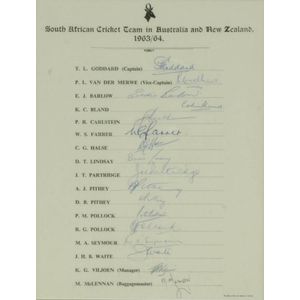 South African Cricket Team in Australia and New Zealand,
1963/64.
T. L. GODDARD (Captain) Goddard
P. L. VAN DER MERWE (Vice-Captain)
E. J. BARLOW Eddie Barlow
K. C. BLAND Colin Bland
P. R. CARLSTEIN
W. S. FARRER W.S. Farrer
C. G. HALSE
D. T. LINDSAY
J. T. PARTRIDGE J. Partridge
A. J. PITHEY
D. B. PITHEY
P. M. POLLOCK
R. G. POLLOCK
M. A. SEYMOUR
J. H. B. WAITE Waite
K. G. VILJOEN (Manager)
M. McLENNAN (Baggagemaster)